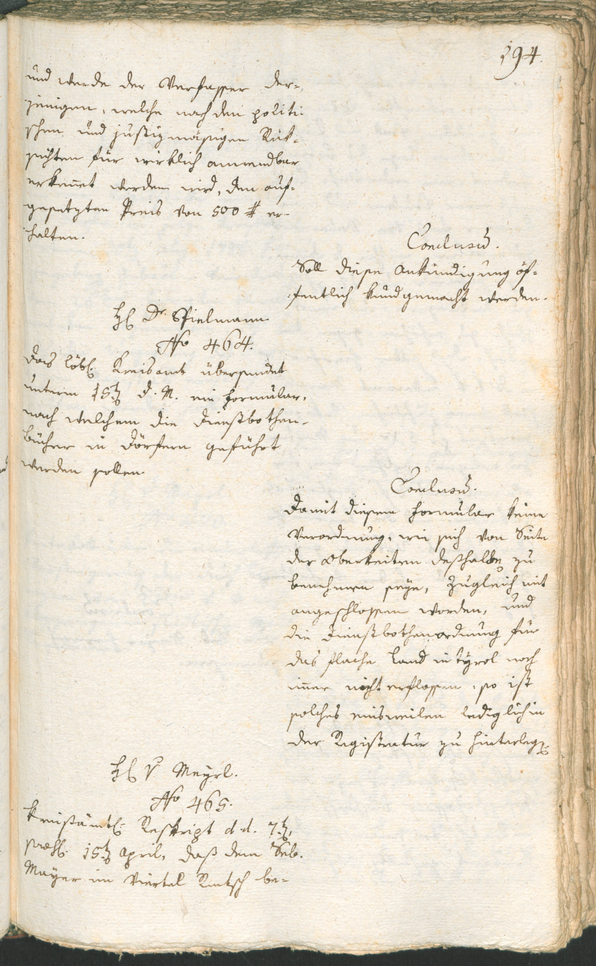 194.
und werde der Verfasser der-
jenigen, welche nach den politi-
schen, und justizmäsigen Rük-
sichten für wirklich anwendbar
erkennt werden wird, den auf-
gesetzten Preis von 500 f er-
halten.
Conclusum.
Soll diese Ankündigung öf-
fentlich kundgemacht werden.
H. Dr. Spielmann
No 464.
Das löbl. Kreisamt übersendet
unterm 15ten d. M. ein Formular,
nach welchem die Dienstbothen-
bücher in Dörfern geführt
werden sollen.
Conclusum.
Da mit diesem Formular keine
Verordnung, wie sich von Seite
der Oberkeiten deßhalbs zu
benehmen seye, zugleich mit
angeschlossen worden, und
die Dienstbothenordnung für
das flache Land in Tyrol noch
immer nicht erflossen, so ist
solches einsweilen lediglich in
der Registratur zu hinterlegen
H. v. Mayrl.
No 465.
Kreisämtl. Reskript d. d. 7ten,
praes. 15ten April, daß dem Seb.
Mayer im Viertel Rentsch be-